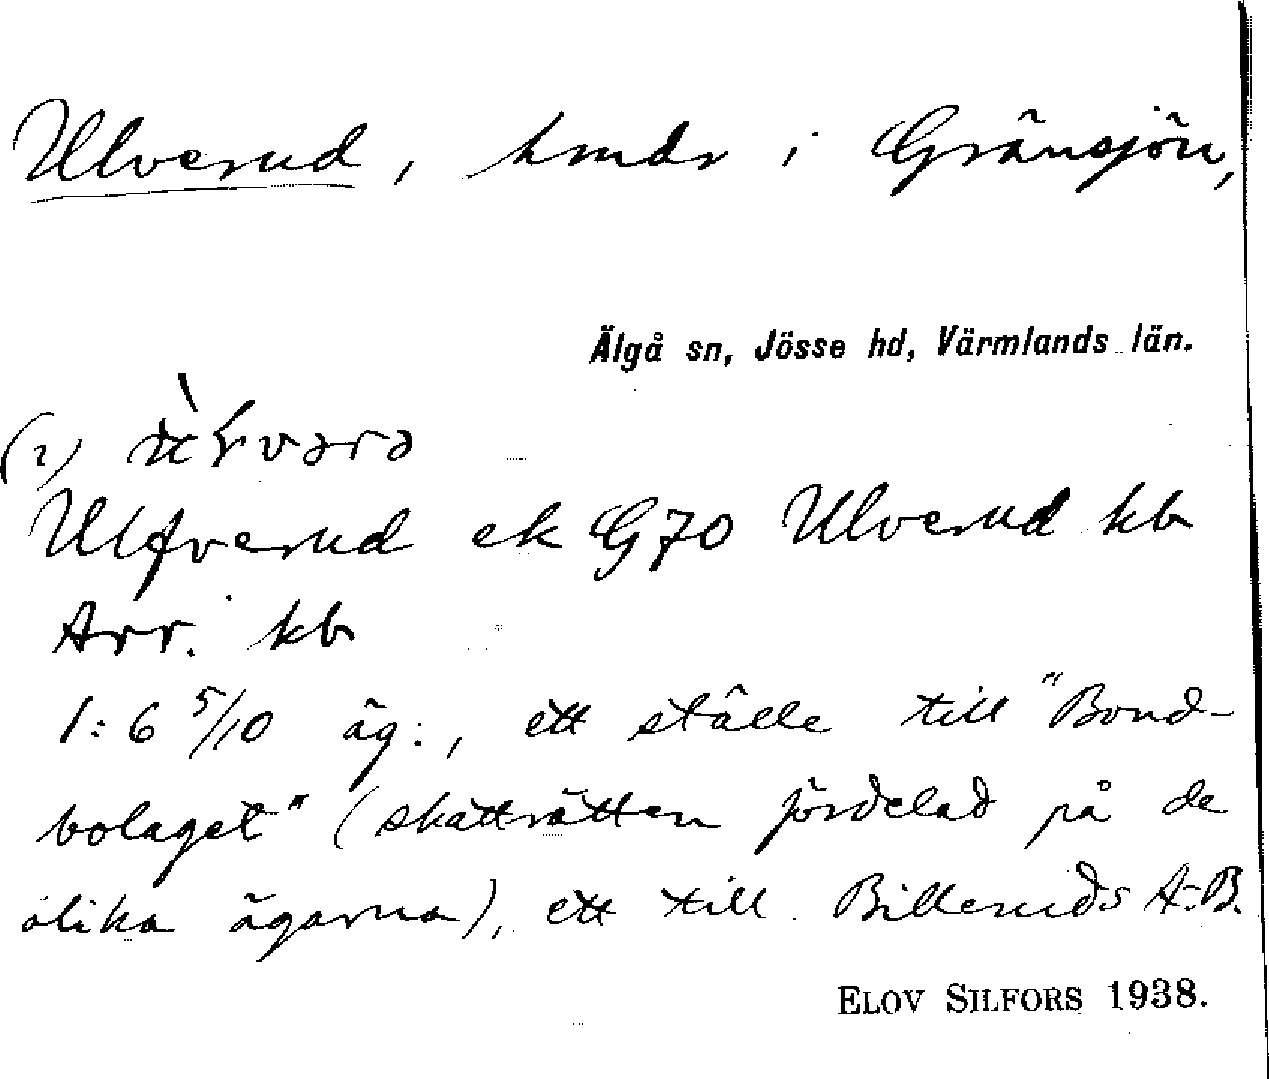 Ulverud, hmdr i Gränsjön,
Älgå sn, Jösse hd, Värmlands län.
(2)
Ulfverud ek G70 Ulverud kb
Arr. kb
1:6 5/10 äg:, ett ställe till "Bond-
bolaget" (skatträtten fördelad på de
olika ägarna), ett till Billeruds A.B.
ELOV SILFORS 1938.